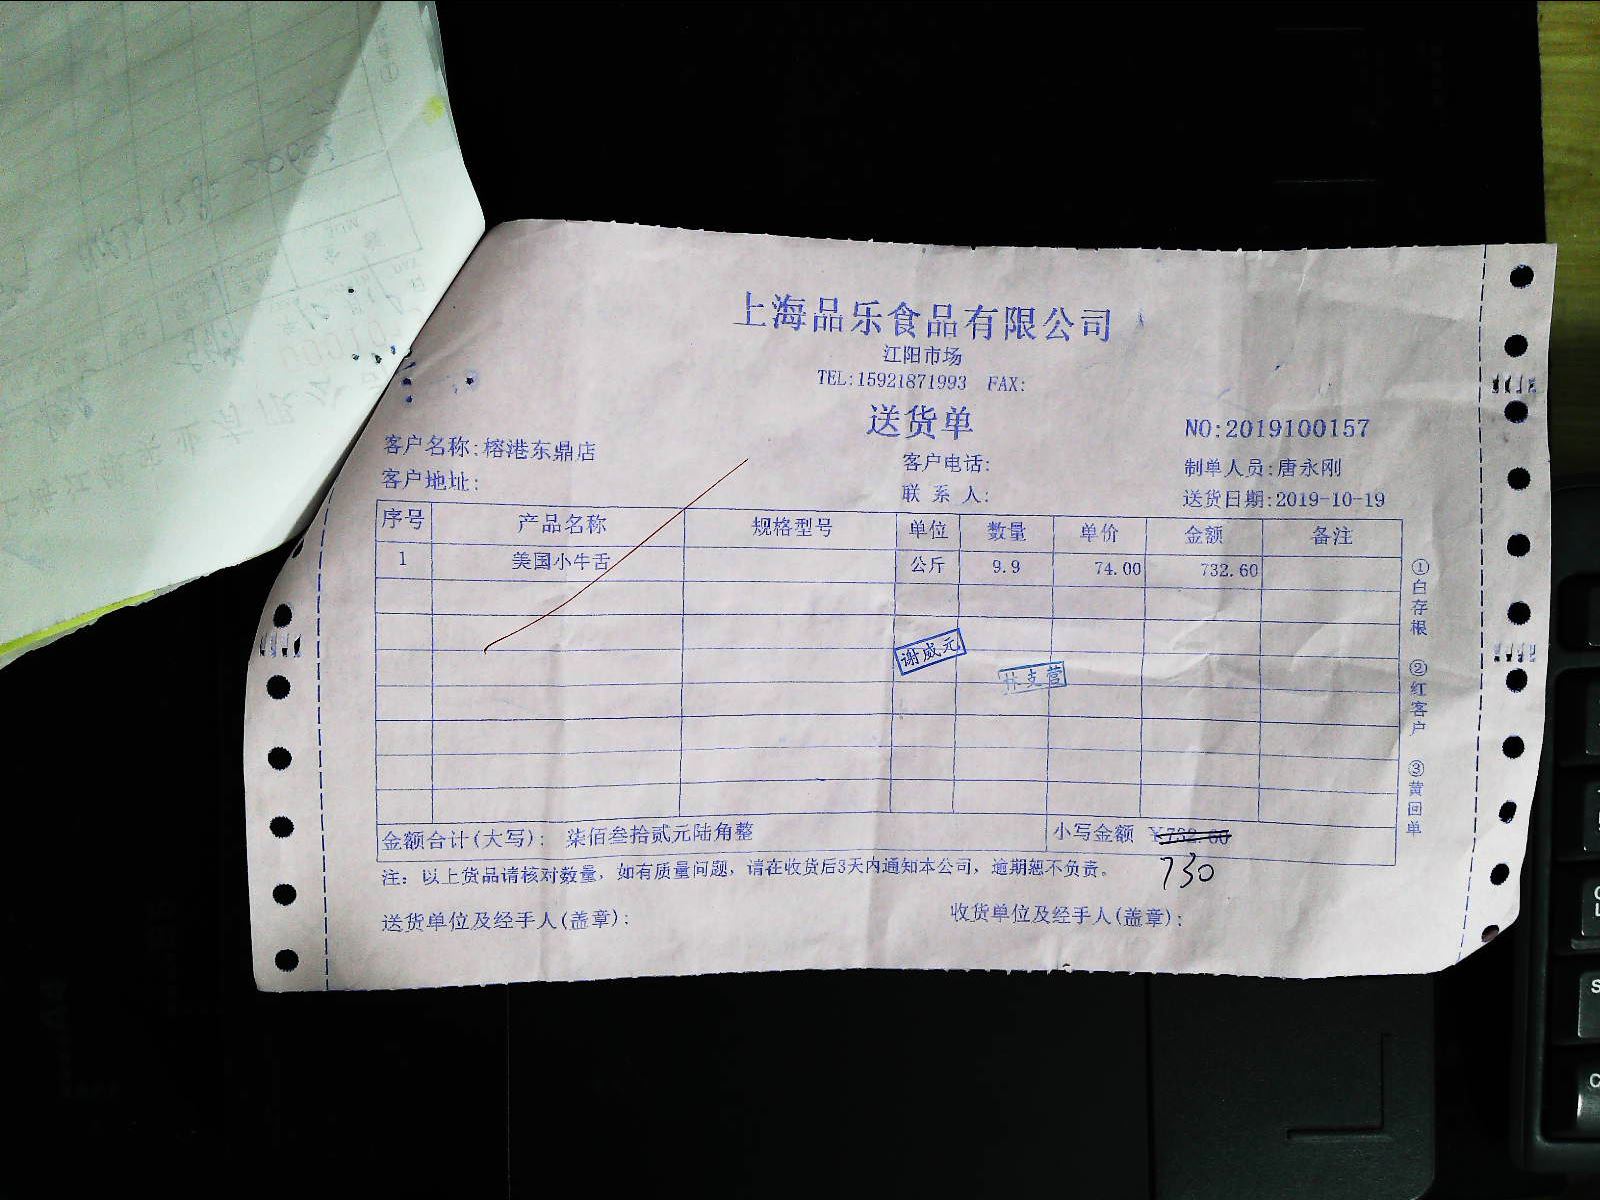 上海品乐食品有限公司
江阳市场
TEL:15921871993 FAX:
送货单
NO:2019100157
客户名称:榕港东鼎店
客户电话:
制单人员:唐永刚
客户地址:
联 系 人:
送货日期:2019-10-19
序号 产品名称 规格型号 单位 数量 单价 金额 备注
1 美国小牛舌 公斤 9.9 74.00 732.60
谢威元
林支营
金额合计(大写): 柒佰叁拾贰元陆角整 小写金额 ¥732.60
730
注: 以上货品请核对数量, 如有质量问题, 请在收货后3天内通知本公司, 逾期恕不负责。
送货单位及经手人(盖章):
收货单位及经手人(盖章):
①白存根 ②红客户 ③黄回单